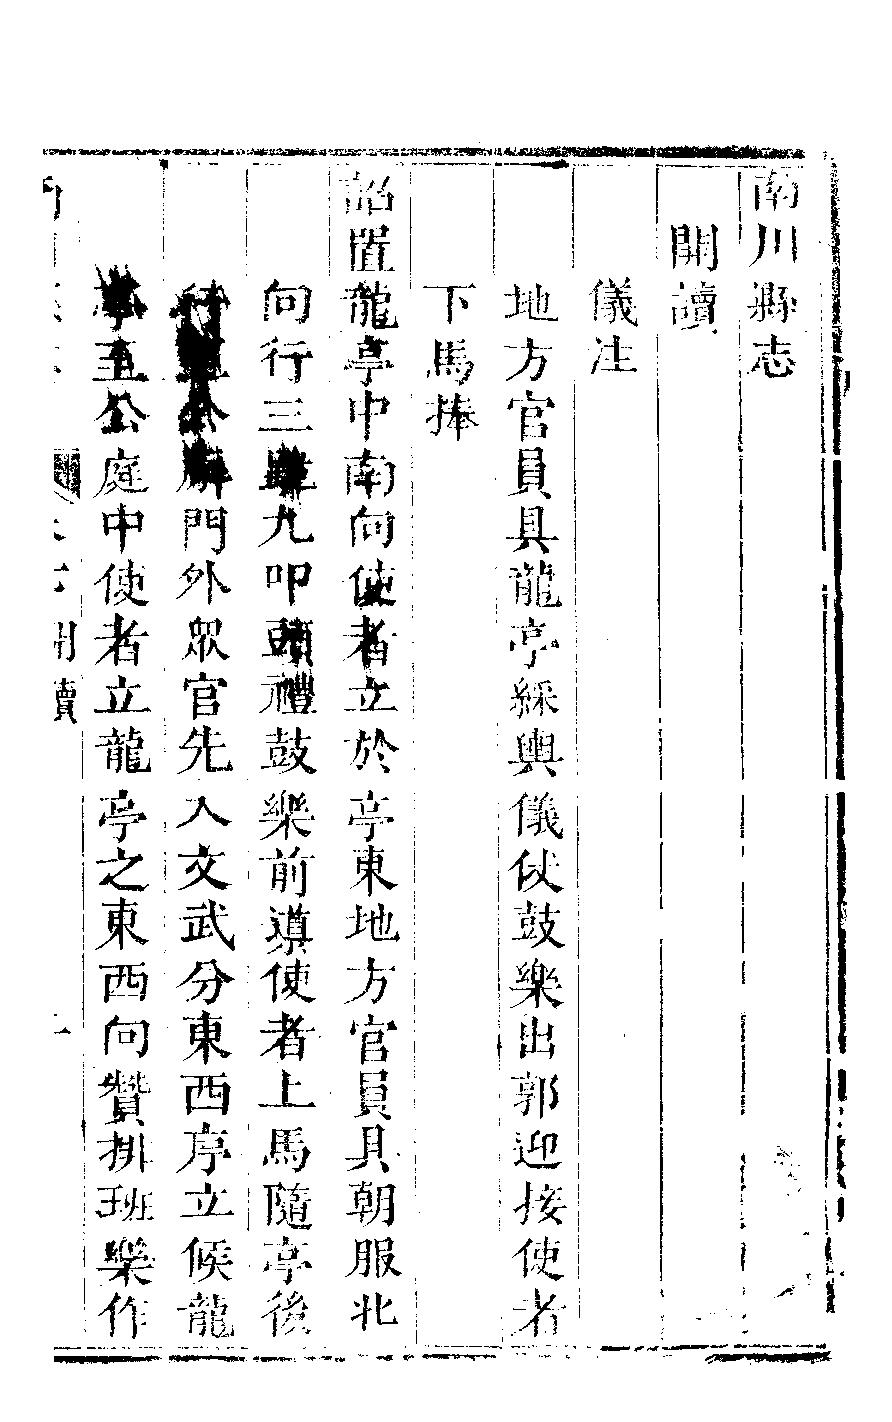 南川縣志
開讀
儀注
地方官員具龍亭綵輿儀仗鼓樂出郭迎接使者
下馬捧
詔置龍亭中南向使者立於亭東地方官員具朝服北
向行三跪九叩頭禮鼓樂前導使者上馬隨亭後
公廨門外眾官先入文武分東西序立候龍
亭至公庭中使者立龍亭之東西向贊排班樂作
開讀